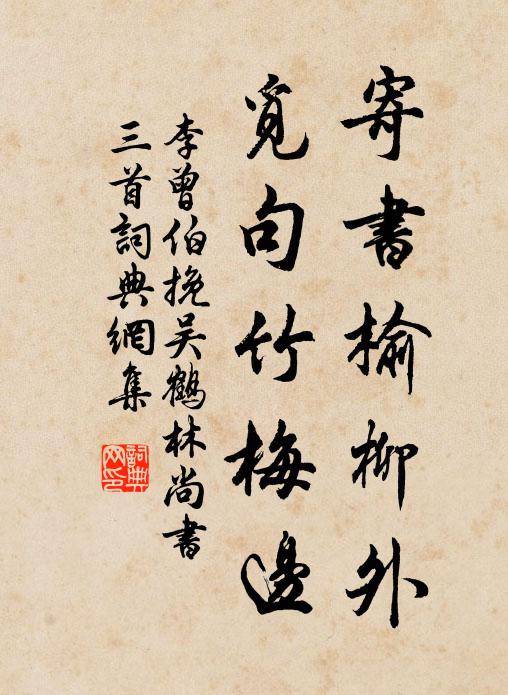 寄書榆柳外
覓句竹梅邊
李曾伯挽吴鶴林尚書
三首詞典網集
詞典
网印